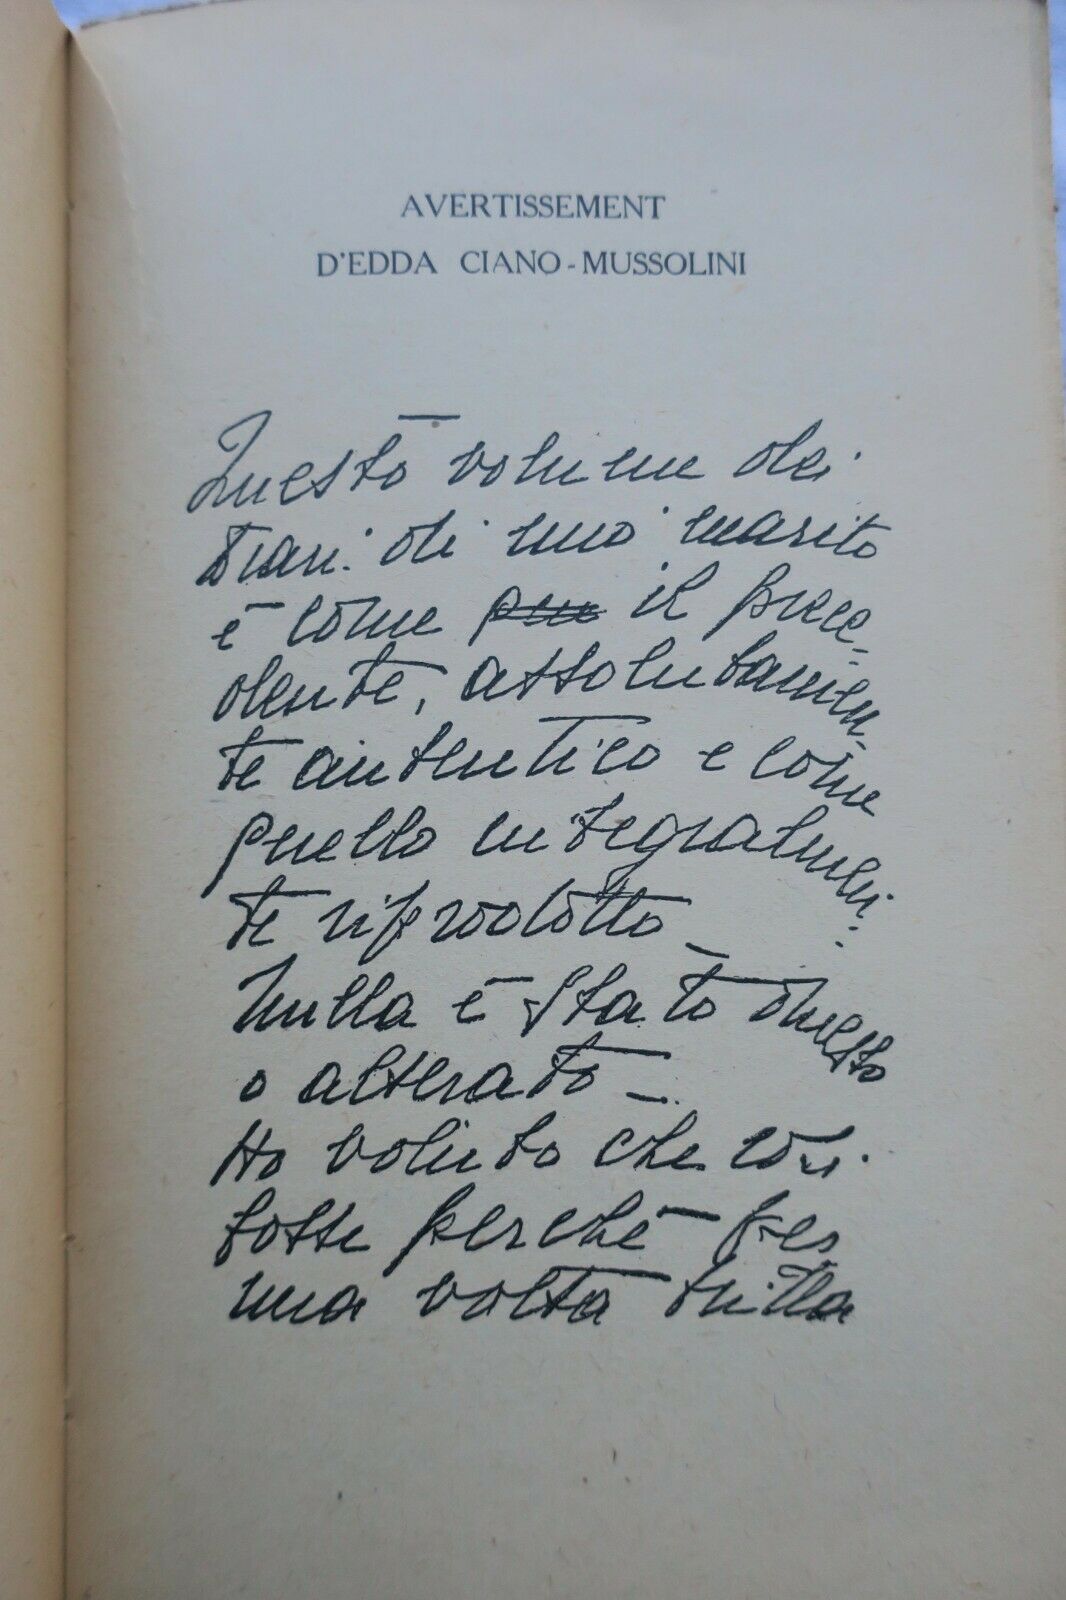 AVERTISSEMENT
D'EDDA CIANO-MUSSOLINI
Questo volume dei
Diari di mio marito
è come il prece-
dente, assolutamen-
te autentico e come
quello integralmen-
te riprodotto_
Nulla è stato omesso
o alterato_
Ho voluto che così
fosse perché per
una volta nella